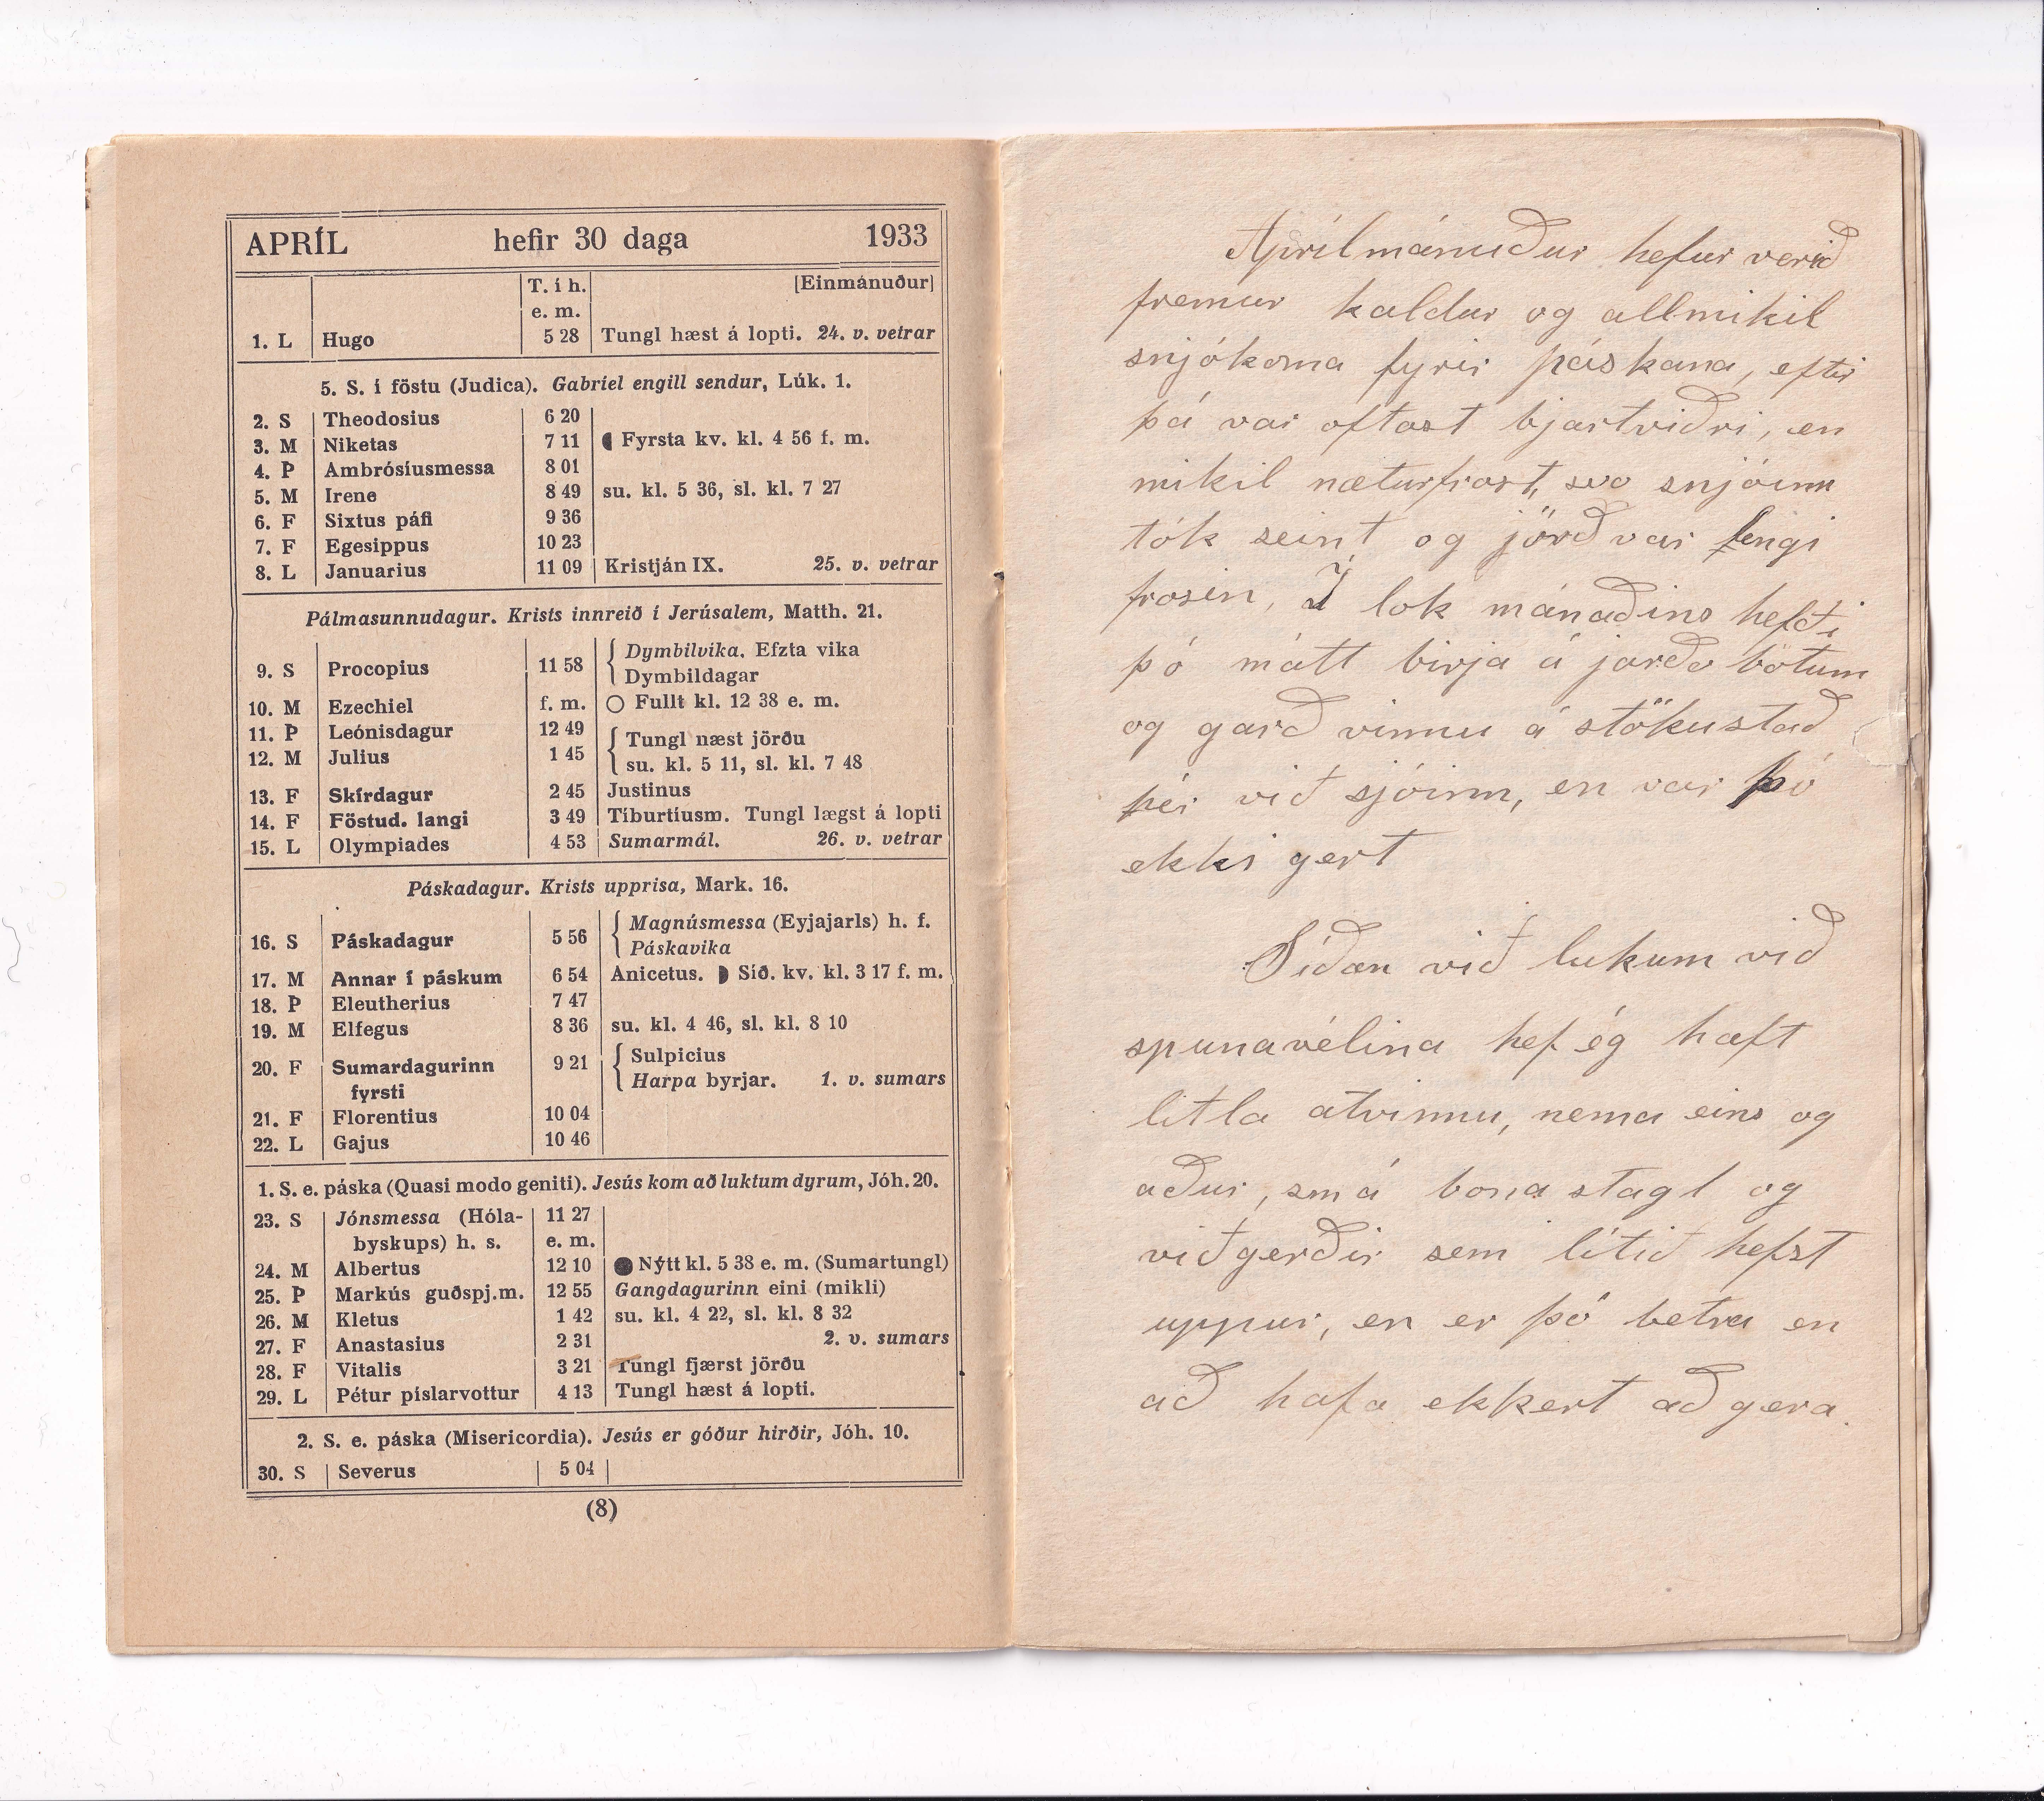 APRÍL hefir 30 daga 1933
T. í h. [Einmánuður]
e. m.
1. L Hugo 5 28 Tungl hæst á lopti. 24. v. vetrar
5. S. í föstu (Judica). Gabríel engill sendur, Lúk. 1.
2. S Theodosius 6 20
3. M Niketas 7 11 Fyrsta kv. kl. 4 56 f. m.
4. Þ Ambrósíusmessa 8 01
5. M Irene 8 49 su. kl. 5 36, sl. kl. 7 27
6. F Sixtus páfi 9 36
7. F Egesippus 10 23
8. L Januarius 11 09 Kristján IX. 25. v. vetrar
Pálmasunnudagur. Krists innreið í Jerúsalem, Matth. 21.
9. S Procopius 11 58 Dymbilvika. Efzta vika
Dymbildagar
10. M Ezechiel f. m. Fullt kl. 12 38 e. m.
11. Þ Leónisdagur 12 49 Tungl næst jörðu
12. M Julius 1 45 su. kl. 5 11, sl. kl. 7 48
13. F Skírdagur 2 45 Justinus
14. F Föstud. langi 3 49 Tíburtíusm. Tungl lægst á lopti
15. L Olympiades 4 53 Sumarmál. 26. v. vetrar
Páskadagur. Krists upprisa, Mark. 16.
16. S Páskadagur 5 56 Magnúsmessa (Eyjajarls) h. f.
Páskavika
17. M Annar í páskum 6 54 Anicetus. Síð. kv. kl. 3 17 f. m.
18. Þ Eleutherius 7 47
19. M Elfegus 8 36 su. kl. 4 46, sl. kl. 8 10
20. F Sumardagurinn 9 21 Sulpicius
fyrsti Harpa byrjar. 1. v. sumars
21. F Florentius 10 04
22. L Gajus 10 46
1. S. e. páska (Quasi modo geniti). Jesús kom að luktum dyrum, Jóh. 20.
23. S Jónsmessa (Hóla- 11 27
byskups) h. s. e. m.
24. M Albertus 12 10 Nýtt kl. 5 38 e. m. (Sumartungl)
25. Þ Markús guðspj.m. 12 55 Gangdagurinn eini (mikli)
26. M Kletus 1 42 su. kl. 4 22, sl. kl. 8 32
27. F Anastasius 2 31 2. v. sumars
28. F Vitalis 3 21 Tungl fjærst jörðu
29. L Pétur píslarvottur 4 13 Tungl hæst á lopti.
2. S. e. páska (Misericordia). Jesús er góður hirðir, Jóh. 10.
30. S Severus 5 04
(8)
Aprílmánuður hefur verið
fremur kaldur og allmikil
snjókoma fyrir páskana, eftir
þá var oftast bjartviðri, en
mikil næturfrost, svo snjóinn
tók seint og jörð var lengi
frosin, Í lok mánaðins hefði
þó mátt birja á jarða bótum
og garð vinnu á stöku stað
hér við sjóinn, en var þó
ekki gert
Síðan við lukum við
spunavélina hef ég haft
litla atvinnu, nema eins og
aður, smá bona stagl og
viðgerðir sem lítið hefst
uppur, en er þó betra en
að hafa ekkert að gera.